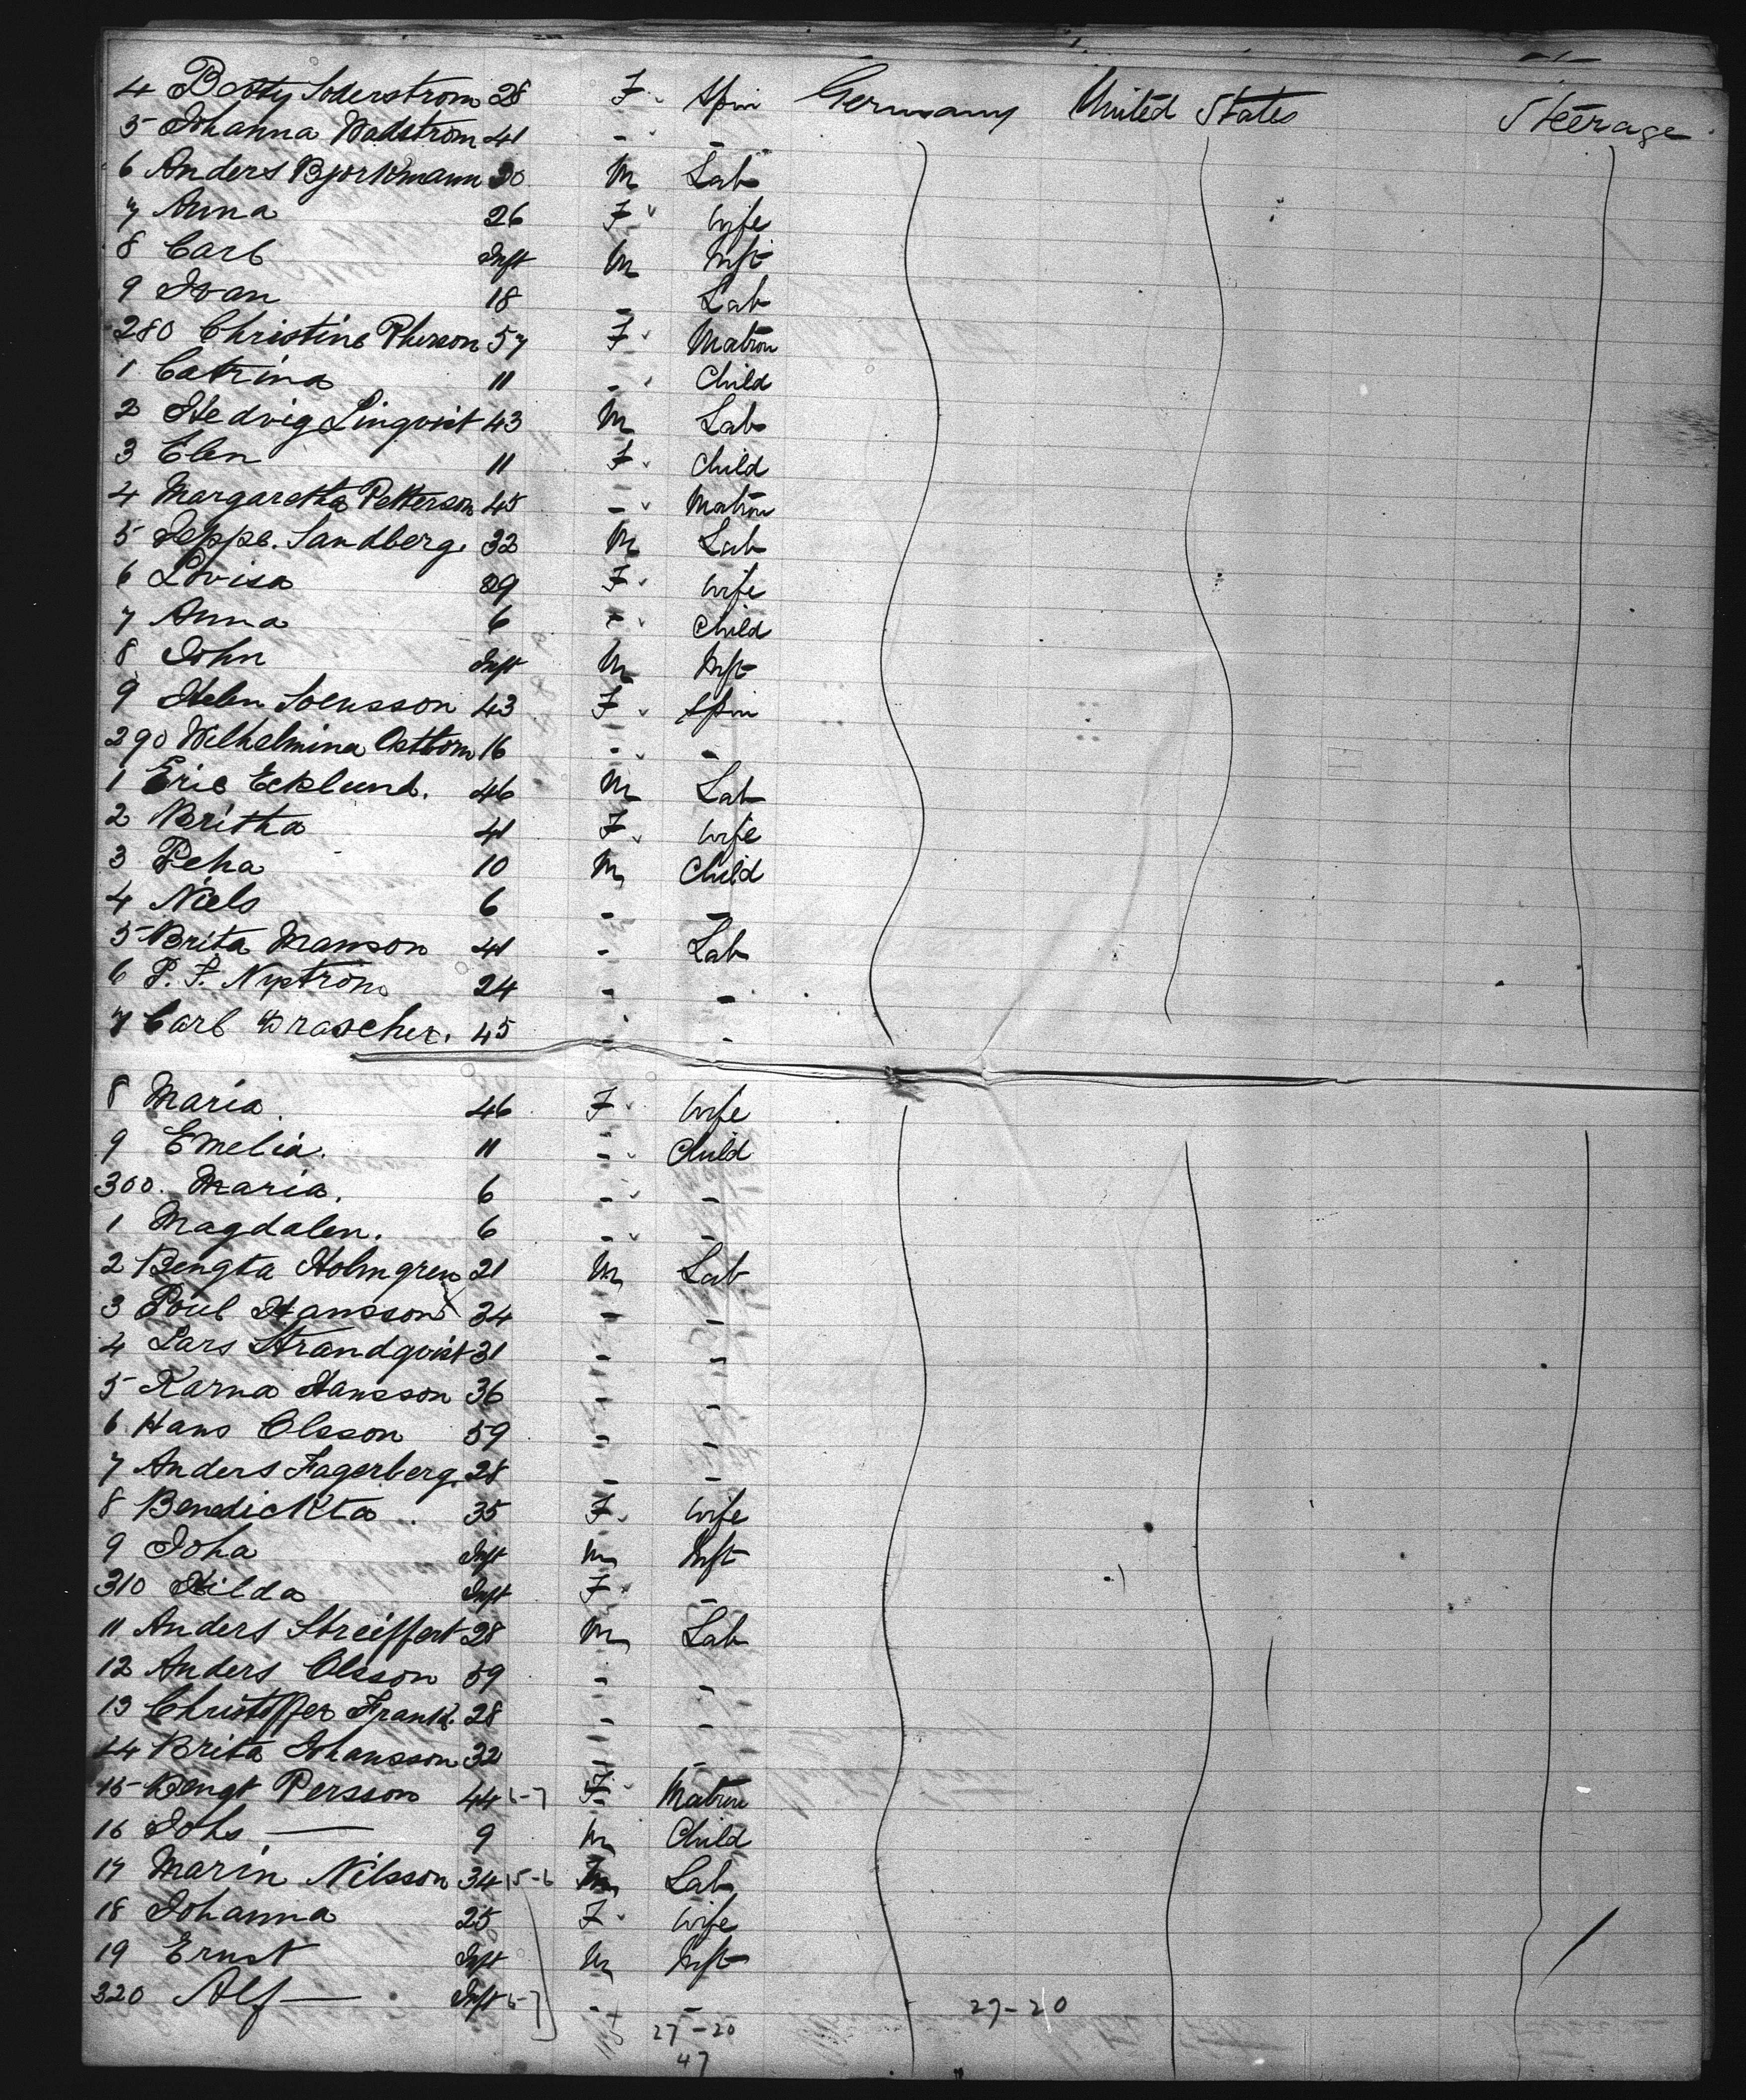 4 Betty Soderstrom 28 F. Spin Germany United States Steerage
5 Johanna Wadstrom 41 - -
6 Anders Bjorkmann 30 M Lab
7 Anna 26 F wife
8 Carl Inft M Inft
9 Ivan 18 - Lab
280 Christine Pherson 57 F Matron
1 Catrina 11 - Child
2 Hedvig Linqvist 43 M Lab
3 Elen 11 F Child
4 Margaretha Petterson 45 - Matron
5 Jeppe Sandberg. 32 M Lab
6 Lovisa 29 F wife
7 Anna 6 - Child
8 John Inft M Inft
9 Helen Svensson 43 F Spin
290 Wilhelmina Ostbom 16 - -
1 Eric Ecklund. 46 M Lab
2 Britha 41 F wife
3 Peha 10 M Child
4 Niels 6 - -
5 Brita Manson 41 - Lab
6 P. F. Nystrom 24 - -
7 Carl Drascher. 45 - -
8 Maria 46 F wife
9 Emelia. 11 - Child
300. Maria. 6 - -
1 Magdalen. 6 - -
2 Bengta Holmgren 21 M Lab
3 Poul Hansson 34 - -
4 Lars Strandqvist 31 - -
5 Karna Hansson 36 - -
6 Hans Olsson 59 - -
7 Anders Fagerberg. 28 - -
8 Benedickta 35 F. wife
9 Joha Inft M Inft
310 Hilda Inft F -
11 Anders Streiffert 28 M Lab
12 Anders Olsson 59 - -
13 Christoffer Frank. 28 - -
14 Brita Johansson 32 - -
15 Bengt Persson 44 6-7 F Matron
16 Johs — 9 M Child
17 Marin Nilsson 34 15-6 M Lab
18 Johanna 25 F wife
19 Ernst Inft M Inft
320 Alf — Inft 6-7 - - 27-20
27-20
47